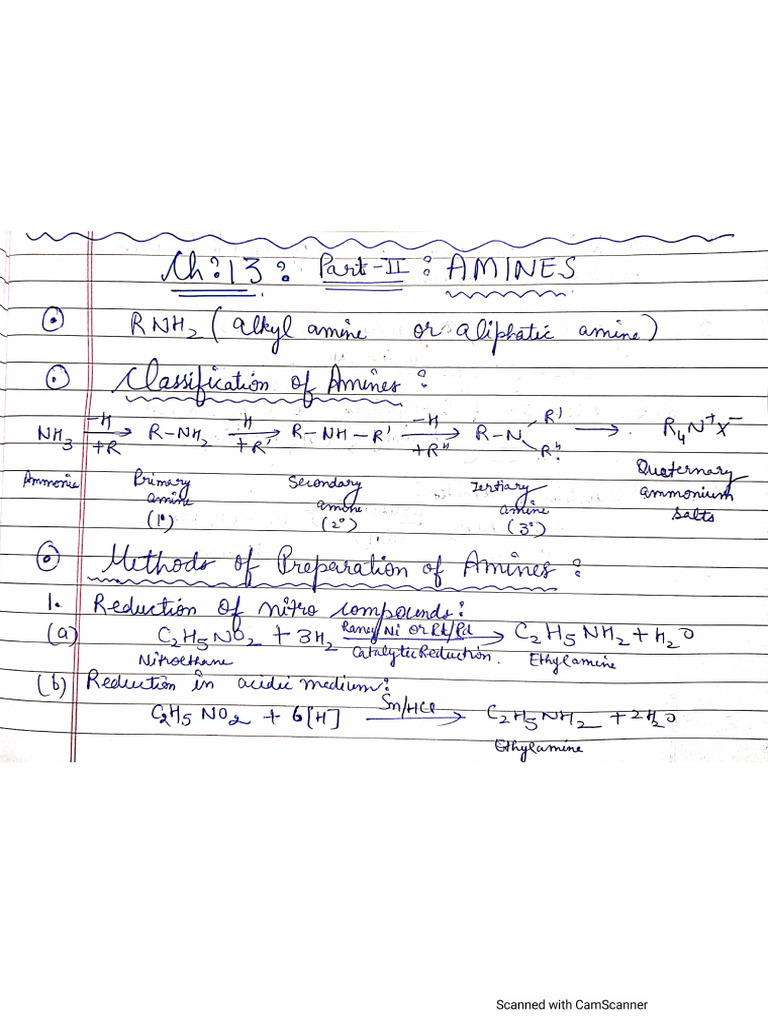 Ch:13: Part-II: AMINES
RNH₂ (alkyl amine or aliphatic amine)
Classification of Amines:
NH₃ —H/+R→ R-NH₂ —H/+R'→ R-NH-R' —H/+R"→ R-N R' R" → R₄N⁺X⁻
Ammonia Primary amine (1°) Secondary amine (2°) Tertiary amine (3°) Quaternary ammonium salts
Methods of Preparation of Amines:
1. Reduction of nitro compounds:
(a) C₂H₅NO₂ + 3H₂ Raney Ni or Pt/Pd → C₂H₅NH₂ + H₂O
Nitroethane Catalytic Reduction. Ethylamine
(b) Reduction in acidic medium:
C₂H₅NO₂ + 6[H] Sn/HCl → C₂H₅NH₂ + 2H₂O
Ethylamine
Scanned with CamScanner